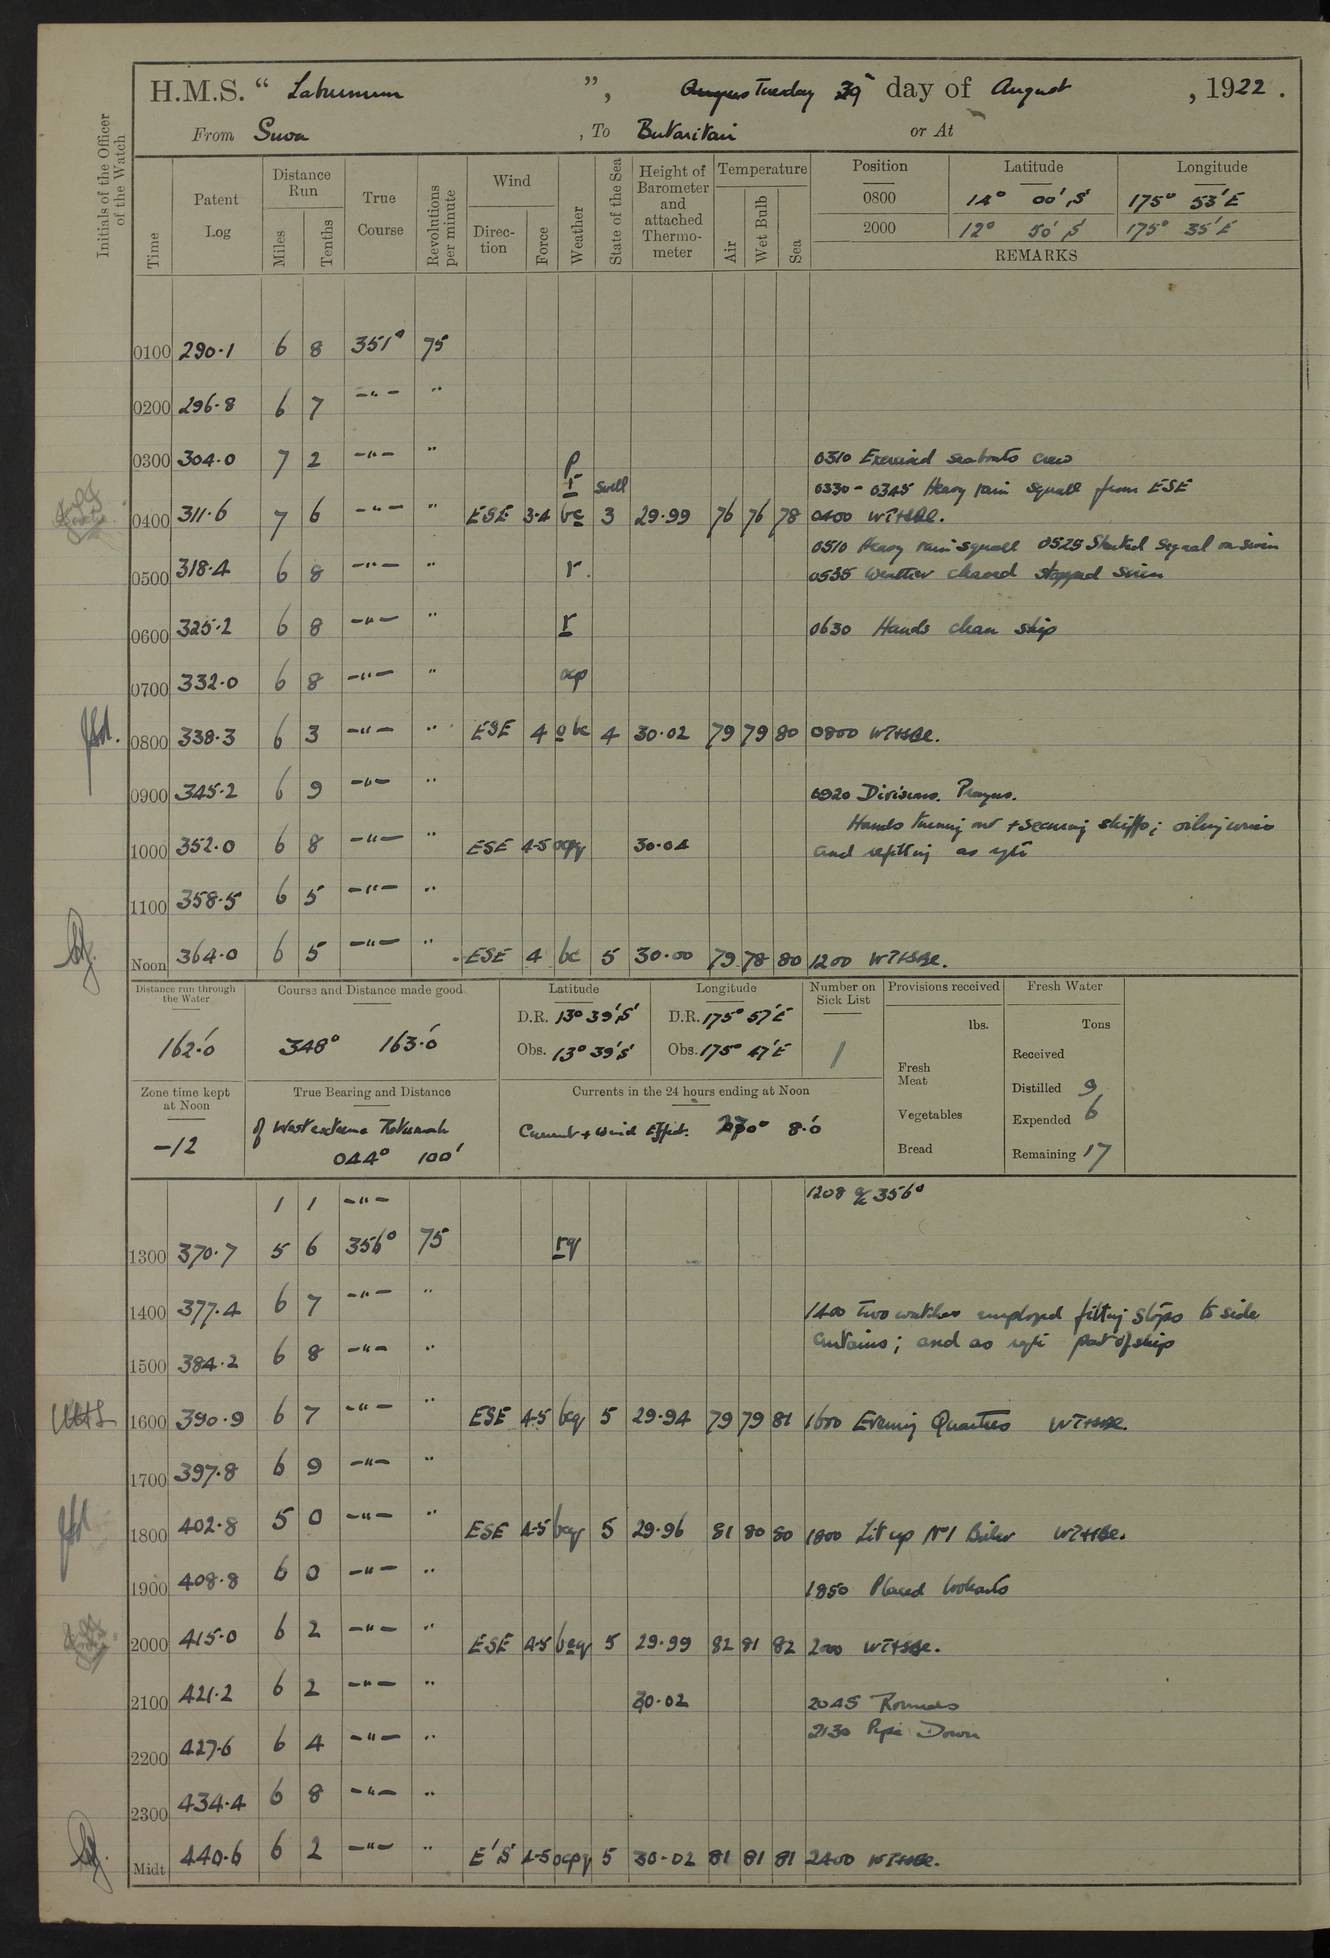 H.M.S. “ Laburnum ”, Tuesday 29th day of August, 1922.
From Suva, To Butaritari or At
Initials of the Officer of the Watch
Time Patent Log Distance Run Miles Tenths True Course Revolutions per minute Wind Direction Force Weather State of the Sea Height of Barometer and attached Thermometer Temperature Air Wet Bulb Sea Position Latitude Longitude
0800 14° 00' S 175° 53' E
2000 12° 50' S 175° 35' E
REMARKS
0100 290.1 6 8 351° 75
0200 296.8 6 7 —"— "
0300 304.0 7 2 —"— " p 0310 Exercised seaboats crew
r swell 0330 - 0345 Heavy rain squall from ESE
0400 311.6 7 6 —"— " ESE 3-4 bc 3 29.99 76 76 78 0400
0510 Heavy rain squall 0525 Started Signal on siren
0500 318.4 6 8 —"— " r. 0535 Weather cleared stopped siren
0600 325.2 6 8 —"— " r 0630 Hands clean ship
0700 332.0 6 8 —"— " ocp
0800 338.3 6 3 —"— " ESE 4 o bc 4 30.02 79 79 80 0800
0900 345.2 6 9 —"— " 0920 Divisions. Prayers.
Hands turning out + securing skiffs; oiling wires
1000 352.0 6 8 —"— " ESE 4-5 ocpq 30.04 and refitting as req
1100 358.5 6 5 —"— "
Noon 364.0 6 5 —"— " ESE 4 bc 5 30.00 79 78 80 1200
Distance run through the Water Course and Distance made good Latitude Longitude Number on Sick List Provisions received Fresh Water
162.0' 348° 163.0' D.R. 13° 39' S D.R. 175° 57' E lbs. Tons
Obs. 13° 39' S Obs. 175° 47' E 1 Fresh Meat Received
Zone time kept at Noon True Bearing and Distance Currents in the 24 hours ending at Noon Distilled 9
of West extreme Rotumah Current + Wind Effect. 270° 8.0' Vegetables Expended 6
-12 044° 100' Bread Remaining 17
1 1 —"— 1208 a/c 356°
1300 370.7 5 6 356° 75 rq
1400 377.4 6 7 —"— " 1400 Two watches employed fitting stops to side
1500 384.2 6 8 —"— " curtains; and as req part of ship
1600 390.9 6 7 —"— " ESE 4-5 bcq 5 29.94 79 79 81 1600 Evening Quarters
1700 397.8 6 9 —"— "
1800 402.8 5 0 —"— " ESE 4-5 bcq 5 29.96 81 80 80 1800 Lit up No 1 Boiler
1900 408.8 6 0 —"— " 1850 Placed lookouts
2000 415.0 6 2 —"— " ESE 4-5 bcq 5 29.99 82 81 82 2000
2100 421.2 6 2 —"— " 30.02 2045 Rounds
2130 Pipe Down
2200 427.6 6 4 —"— "
2300 434.4 6 8 —"— "
Midt 440.6 6 2 —"— " E'S 4-5 ocpq 5 30.02 81 81 81 2400